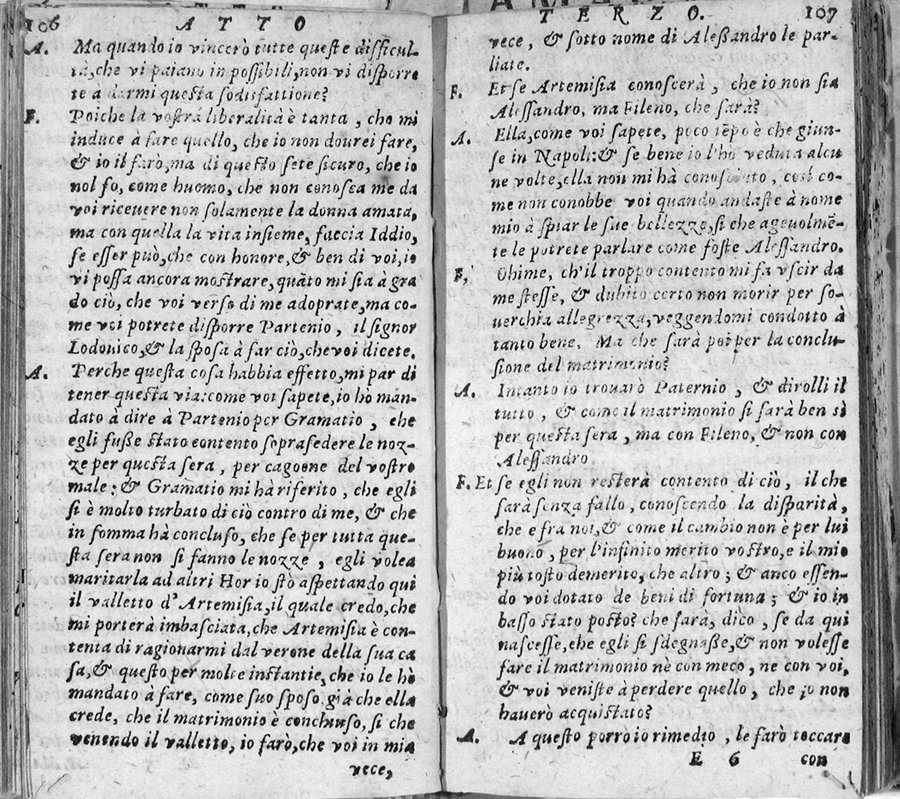 106 ATTO
A. Ma quando io vincerò tutte queste difficul-
tà, che vi paiano in possibili, non vi disporre
te a darmi questa sodisfattione?
F. Poiche la vostra liberalità è tanta, che mi
induce à fare quello, che io non dourei fare,
& io il farò, ma di questo sete sicuro, che io
nol fo, come huomo, che non conosca me da
voi riceuere non solamente la donna amata,
ma con quella la vita insieme, faccia Iddio,
se esser può, che con honore, & ben di voi, io
vi possa ancora mostrare, quãto mi sia à gra
do ciò, che voi verso di me adoprate, ma co-
me voi potrete disporre Partenio, il signor
Lodouico, & la sposa à far ciò, che voi dicete.
A. Perche questa cosa habbia effetto, mi par di
tener questa via: come voi sapete, io ho mãn-
dato à dire à Partenio per Gramatio, che
egli fuße stato contento soprasedere le noz-
ze per questa sera, per cagoone del vostro
male: & Gramatio mi hà riferito, che egli
si è molto turbato di ciò contro di me, & che
in somma hà concluso, che se per tutta que-
sta sera non si fanno le nozze, egli volea
maritarla ad altri Hor io stò aspettando qui
il valletto d'Artemisia, il quale credo, che
mi porterà imbasciata, che Artemisia è con-
tenta di ragionarmi dal verone della sua ca
sa, & questo per molte instantie, che io le hò
mandato à fare, come suo sposo già che ella
crede, che il matrimonio è conchiuso, si che
venendo il valletto, io farò, che voi in mia
vece,
TERZO. 107
vece, & sotto nome di Aleßandro le par-
liate.
F. Et se Artemisia conoscerà, che io non sia
Alessandro, ma Fileno, che sarà?
A. Ella, come voi sapete, poco tẽpo è che giun-
se in Napoli: & se bene io l'hò veduta alcu
ne volte, ella non mi hà conosciuto, così co-
me non conobbe voi quando andaste à nome
mio à spiar le sue bellezze, si che ageuolmẽ-
te le potrete parlare come foste Alessandro.
F. Ohime, ch'il troppo contento mi fa vscir da
me stesse, & dubito certo non morir per so-
uerchia allegrezza, veggendomi condotto à
tanto bene. Ma che sarà poi per la conclu-
sione del matrimonio?
A. Intanto io trouarò Paternio, & dirolli il
tutto, & come il matrimonio si farà ben sì
per questa sera, ma con Fileno, & non con
Alessandro
F. Et se egli non resterà contento di ciò, il che
sarà senza fallo, conoscendo la disparità,
che e fra noi, & come il cambio non è per lui
buono, per l'infinito merito vostro, e il mio
più tosto demerito, che altro; & anco essen-
do voi dotato de beni di fortuna; & io in
basso stato posto? che sarà, dico, se da qui
nascesse, che egli si sdegnaße, & non volesse
fare il matrimonio nè con meco, ne con voi,
& voi veniste à perdere quello, che io non
hauerò acquistato?
A. A questo porro io rimedio, le farò toccare
E 6 con